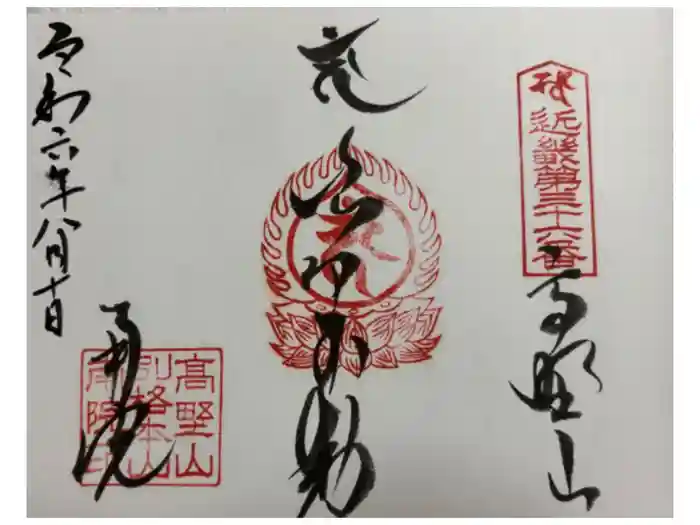 近畿第三十六番
高野山
浪切不動
高野山
別格本山
南院印
南院
令和六年八月十日